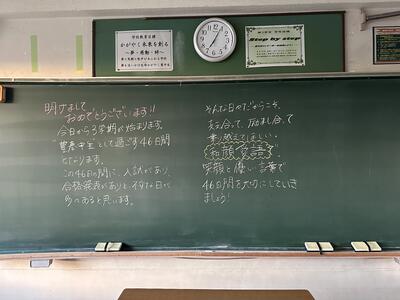 学校教育目標
かがやく未来を創る
～夢・感動・絆～
Step by step
明けまして
おめでとうございます!!
今日から3学期が始まります。
中生として過ごす46日間
となります。
この46日の間に、入試があり、
合格発表がありと、イタな日が
多々あると思います。
そんな日々だからこそ、
支え合って、励まし合って
乗り越えてほしい。
"和顔愛語"
笑顔と優しい言葉で
46日間を大切にしていき
ましょう!